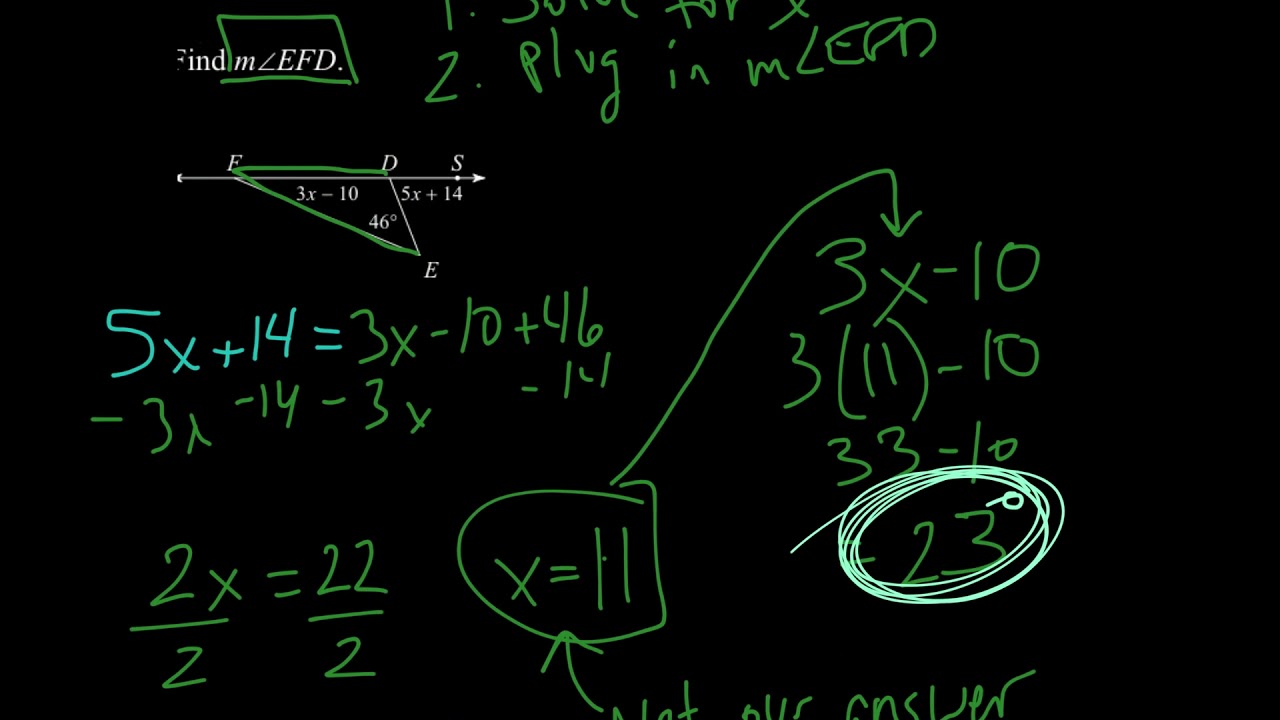 1. Solve for x
Find m∠EFD.
2. Plug in m∠EFD
F D S
3x − 10 5x + 14
46°
E
3x-10
5x+14=3x-10+46
3(11)-10
-3x -14 -3x -14
33-10
= 23°
2x = 22
2 2
x=11
Not our answer